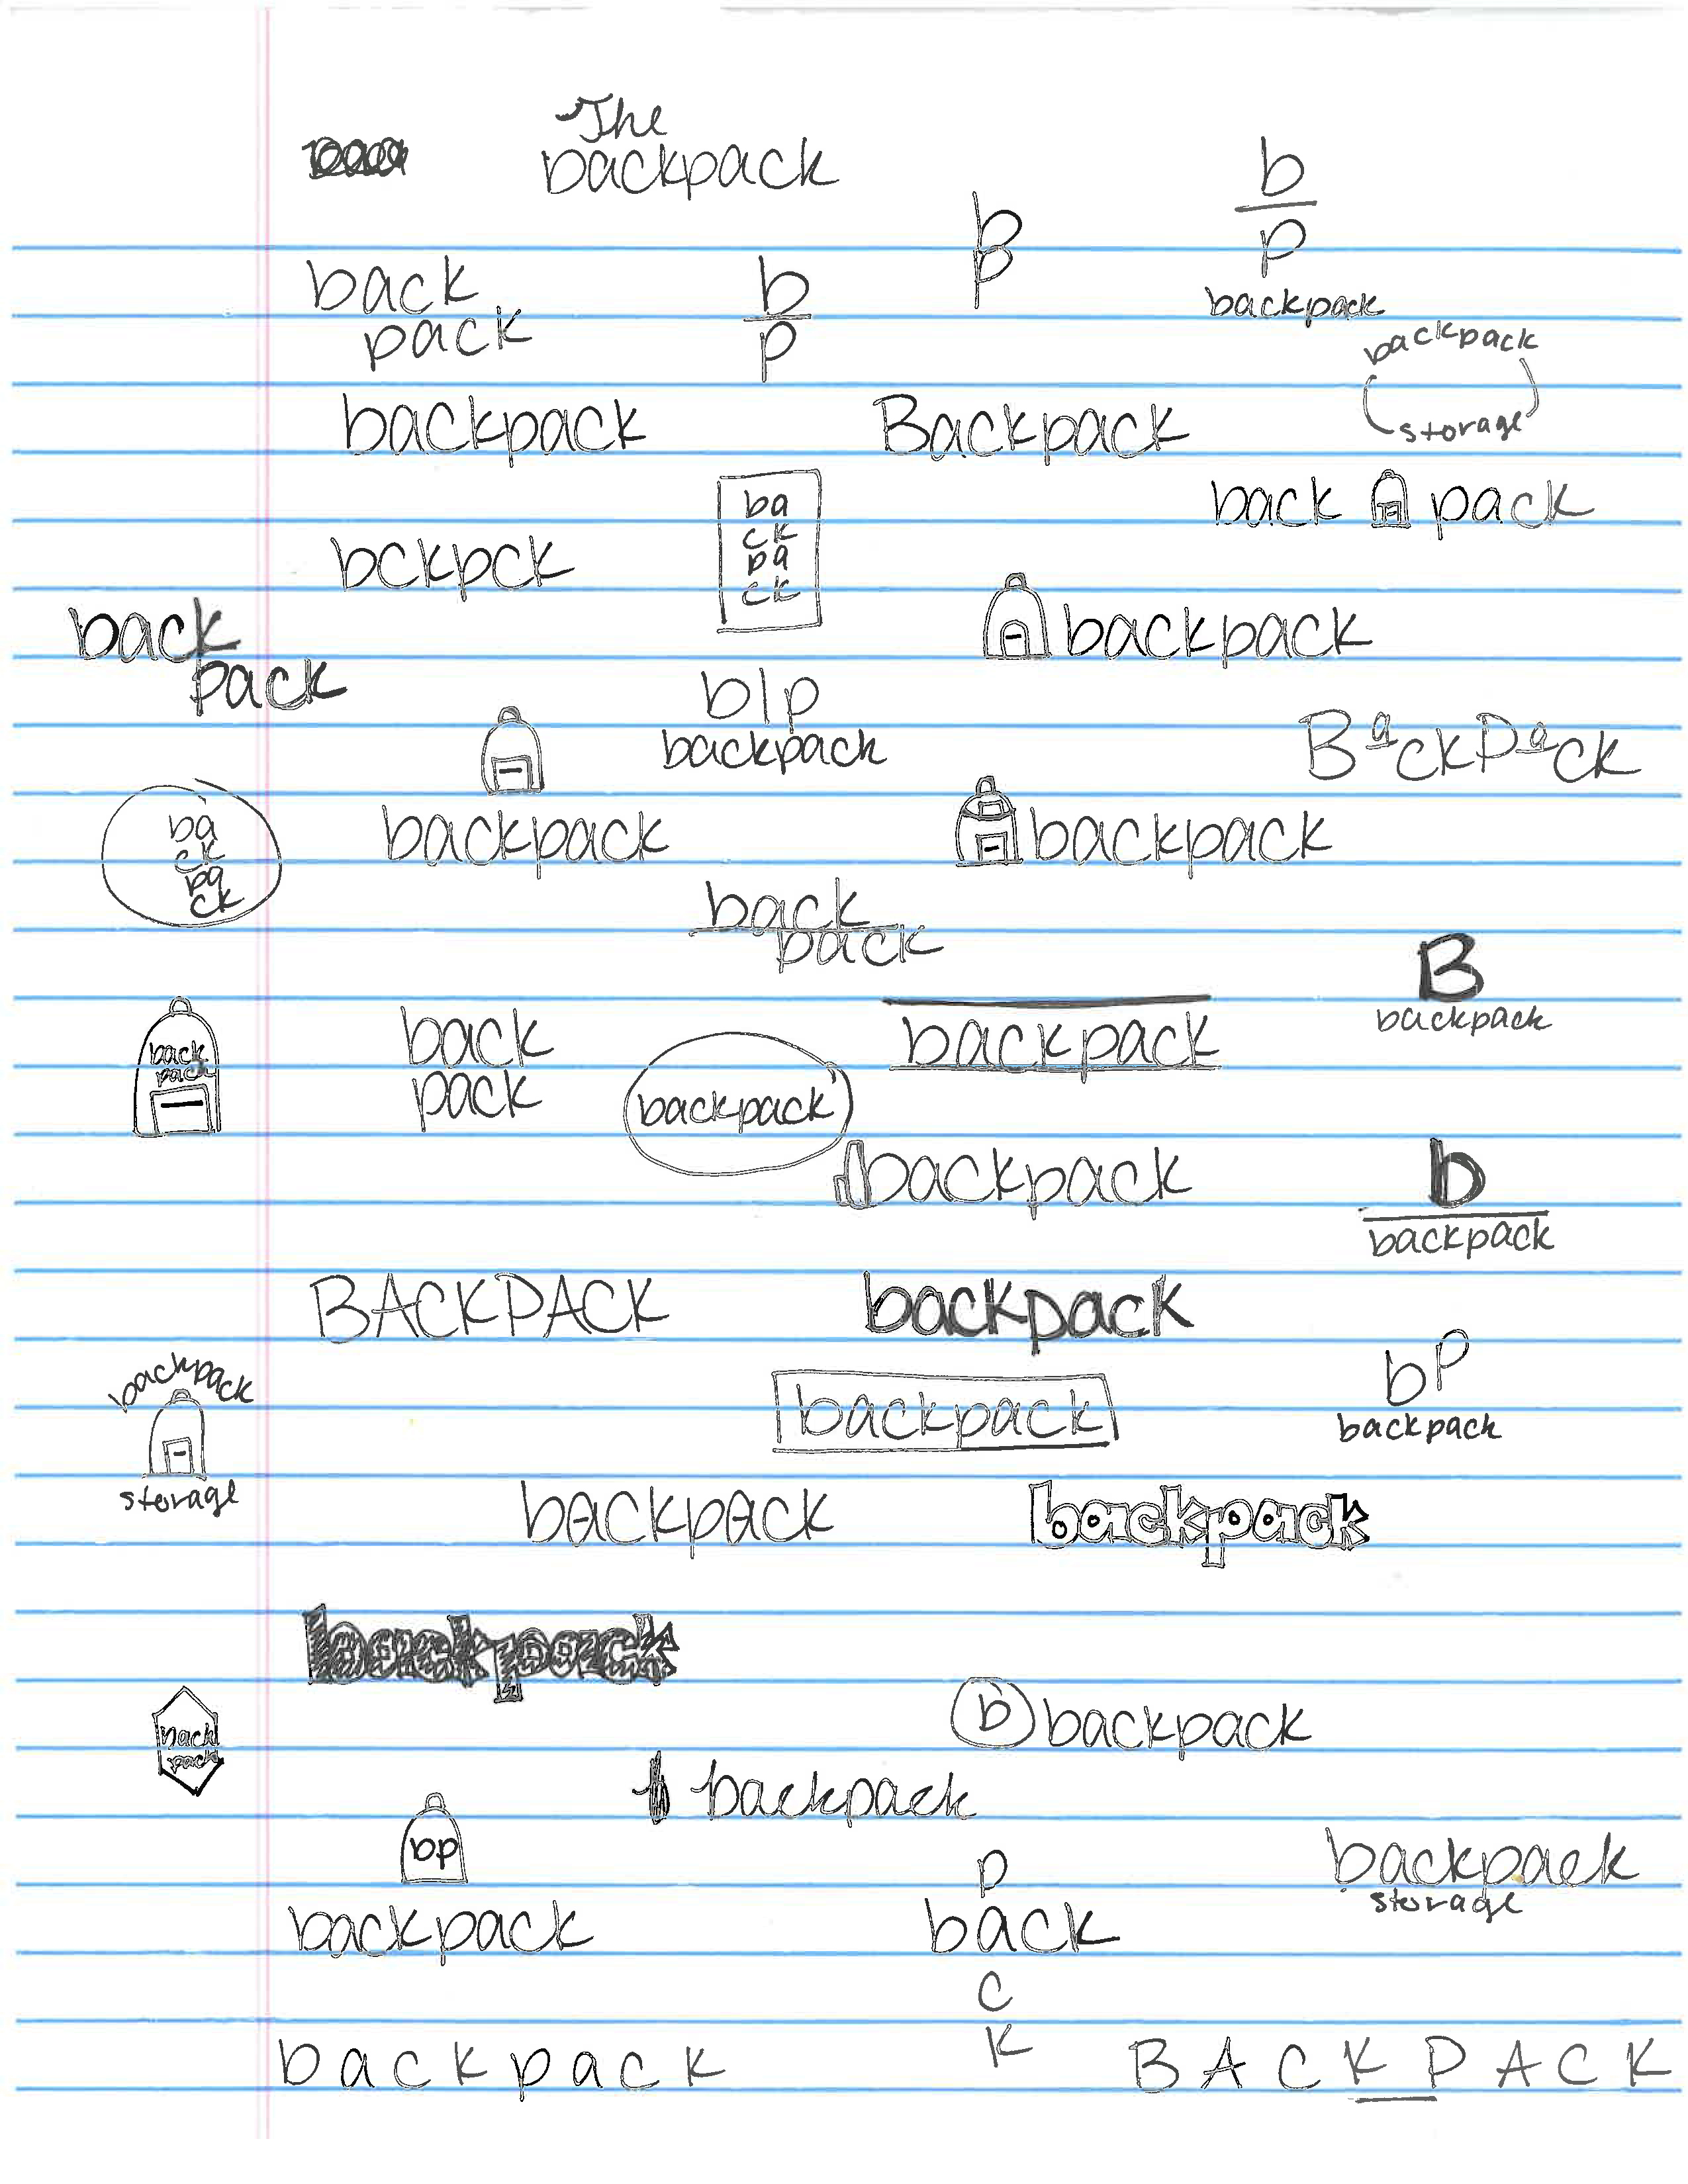 The
backpack
b
p
backpack
b
p
back
pack
b
p
backpack
storage
backpack
Backpack
back pack
ba
ck
pa
ck
bckpck
backpack
back
pack
b|p
backpack
BackPack
backpack
backpack
ba
ck
pa
ck
back
pack
B
backpack
back
pack
back
pack
backpack
backpack
backpack
b
backpack
BACKPACK
backpack
backpack
storage
backpack
bP
backpack
backpack
backpack
backpack
back
pack
b backpack
b backpack
bp
backpack
backpack
storage
p
back
c
k
backpack
BACKPACK